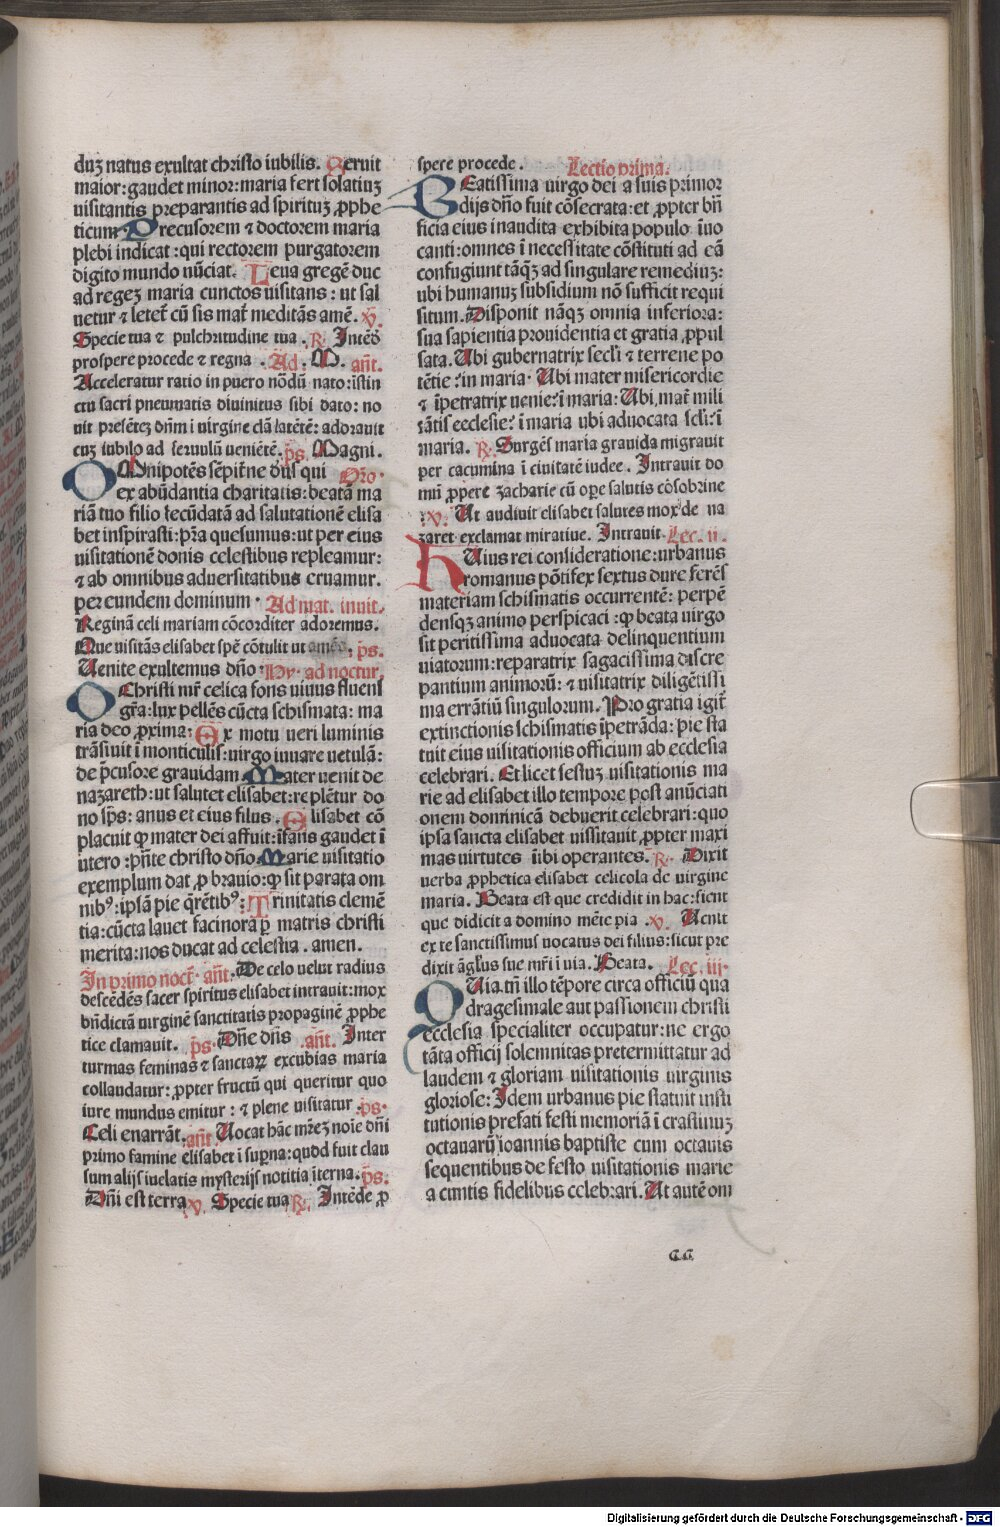 duʒ natus exultat christo iubilis. Seruit
maior: gaudet minor: maria fert solatiuʒ
uisitantis preparantis ad spirituʒ ꝓphe
ticum Precusorem ⁊ doctorem maria
plebi indicat: qui rectorem purgatorem
digito mundo nūciat. Leua gregē duc
ad regeʒ maria cunctos uisitans: ut sal
uetur ⁊ letet̄ cū sis mat̄ meditās amē. ꝟ.
Specie tua ⁊ pulchritudine tua. ℟. Intēd
prospere procede ⁊ regna. Ad. M. añt.
Acceleratur ratio in puero nōdū nato: istin
ctu sacri pneumatis diuinitus sibi dato: no
uit presēteʒ dn̄m i uirgine clā latētē: adorauit
cuʒ iubilo ad seruulū ueniētē. p̄s. Magni.
OMnipotēs sēpit̄ne dn̄s qui Oro.
ex abūdantia charitatis: beatā ma
riā tuo filio fecūdatā ad salutationē elisa
bet inspirasti: p̄ra quesumus: ut per eius
uisitationē donis celestibus repleamur:
⁊ ab omnibus aduersitatibus eruamur.
per eundem dominum. Ad mat. inuit.
Reginā celi mariam cōcorditer adoremus.
Que uisitās elisabet spē cōtulit ut amēo. p̄s.
Uenite exultemus dn̄o. Hy. ad noctur.
O Christi mr̄ celica fons uiuus fluens
gr̄a: lux pellēs cūcta schismata: ma
ria deo ꝓxima: Ex motu ueri luminis
trāsiuit i monticulis: uirgo iuuare uetulā:
de p̄cusore grauidam Mater uenit de
naʒareth: ut salutet elisabet: replētur do
no sp̄s: anus et eius filius. Elisabet cō
placuit ꝙ mater dei affuit: ifans gaudet ī
utero: pn̄te christo dn̄o. Marie uisitatio
exemplum dat ꝓ brauio: ꝙ sit parata om
nibꝰ: ipsā pie q̄rētibꝰ: Trinitatis clemē
tia: cūcta lauet facinora ꝑ matris christi
merita: nos ducat ad celestia. amen.
In primo noct̄. añt. De celo uelut radius
descēdēs sacer spiritus elisabet intrauit: mox
bn̄dictā uirginē sanctitatis propaginē ꝓphe
tice clamauit. p̄s. Dn̄e dn̄s. añt. Inter
turmas feminas ⁊ sanctaꝝ excubias maria
collaudatur: ꝓpter fructū qui queritur quo
iure mundus emitur: ⁊ plene uisitatur. p̄s.
Celi enarrāt. añt. Uocat hāc mr̄eʒ noīe dn̄i
primo famine elisabet ī sup̄na: quod fuit clau
sum alijs iuelatis mysterijs notitia īterna. p̄s.
Dn̄i est terra ꝟ. Specie tua ℟. Intēde ꝓ
spere procede. Lectio prima.
BEatissima uirgo dei a suis primor
dijs dn̄o fuit cōsecrata: et ꝓpter bn̄
ficia eius inaudita exhibita populo iuo
canti: omnes ī necessitate cōstituti ad eā
confugiunt tāq̄ʒ ad singulare remediuʒ:
ubi humanuʒ subsidium nō sufficit requi
situm. Disponit nāqʒ omnia inferiora:
sua sapientia prouidentia et gratia ꝓpul
sata. Ubi gubernatrix secl̄i ⁊ terrene po
tētie? in maria. Ubi mater misericordie
⁊ īpetratrix uenie? ī maria: Ubi mat̄ mili
tātis ecclesie? ī maria ubi aduocata scl̄i: ī
maria. ℟. Surgēs maria grauida migrauit
per cacumina ī ciuitatē iudee. Intrauit do
mū ꝓpere zacharie cū ope salutis cōsobrine
ꝟ. Ut audiuit elisabet salutes mox de na
zaret exclamat miratiue. Intrauit. Lec. ii.
HUius rei consideratione: urbanus
romanus pōtifex sextus dure ferēs
materiam schismatis occurrentē: perpē
densqʒ animo perspicaci: ꝙ beata uirgo
sit peritissima aduocata delinquentium
uiatorum: reparatrix sagacissima discre
pantium animorū: ⁊ uisitatrix diligētissi
ma errātiū singulorum. Pro gratia igit̄
extinctionis schismatis īpetrāda: pie sta
tuit eius uisitationis officium ab ecclesia
celebrari. Et licet festuʒ uisitationis ma
rie ad elisabet illo tempore post anūciati
onem dominicā debuerit celebrari: quo
ipsa sancta elisabet uissitauit ꝓpter maxi
mas uirtutes sibi operantes. ℟. Dixit
uerba ꝓphetica elisabet celicola de uirgine
maria. Beata est que credidit in hac: sicut
que didicit a domino mēte pia. ꝟ. Uenit
ex te sanctissimus uocatus dei filius: sicut pre
dixit āglus sue mr̄i ī uia. Beata. Lec. iij.
QUia tn̄ illo tēpore circa officiū qua
dragesimale aut passionem christi
ecclesia specialiter occupatur: ne ergo
tāta officij solemnitas pretermittatur ad
laudem ⁊ gloriam uisitationis uirginis
gloriose: Idem urbanus pie statuit insti
tutionis prefati festi memoriā ī crastinuʒ
octauarū ioannis baptiste cum octauis
sequentibus de festo uisitationis marie
a cuntis fidelibus celebrari. Ut autē om
GG
Digitalisierung gefördert durch die Deutsche Forschungsgemeinschaft - DFG